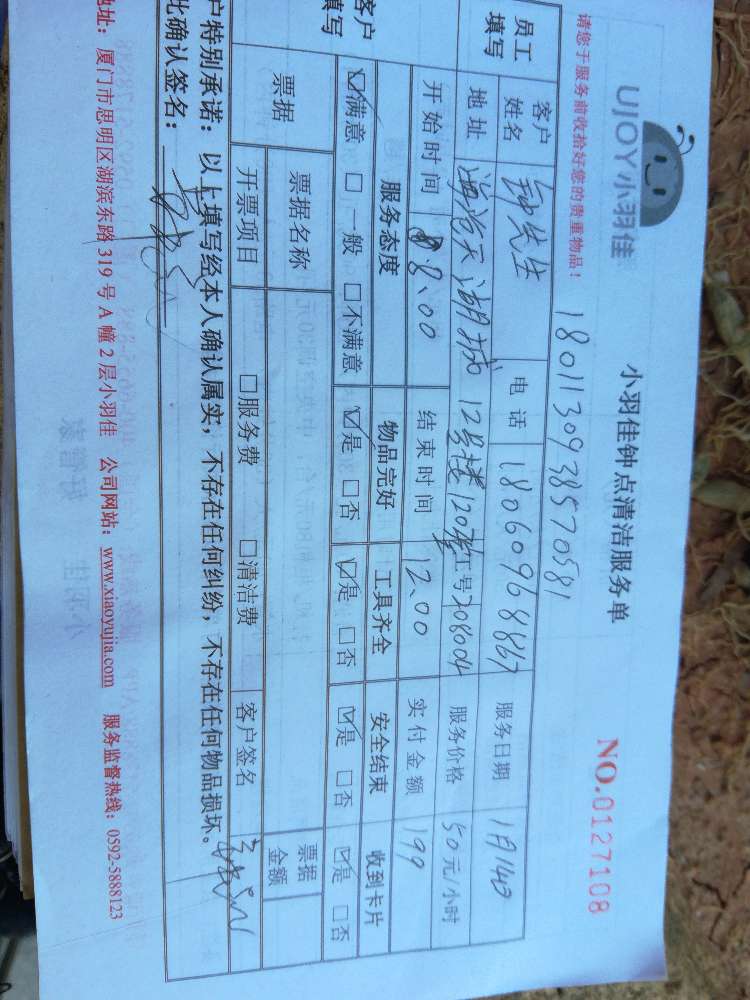 UJOY小羽佳
小羽佳钟点清洁服务单
NO.0127108
请您于服务前收拾好您的贵重物品!
1801130938570581
员工填写
客户姓名 钟先生 电话 18060968867 服务日期 1月14日
地址 海沧天湖城12号楼120 工号 208604 服务价格 50元/小时
开始时间 8:00 结束时间 12:00 实付金额 199
客户填写
服务态度 物品完好 工具齐全 安全结束 收到卡片
☑满意 □一般 □不满意 ☑是 □否 ☑是 □否 ☑是 □否 ☑是 □否
票据 票据名称 票据金额
开票项目 □服务费 □清洁费 客户签名
户特别承诺:以上填写经本人确认属实,不存在任何纠纷,不存在任何物品损坏。
此确认签名:
地址:厦门市思明区湖滨东路319号A幢2层小羽佳 公司网站:www.xiaoyujia.com 服务监督热线:0592-5888123